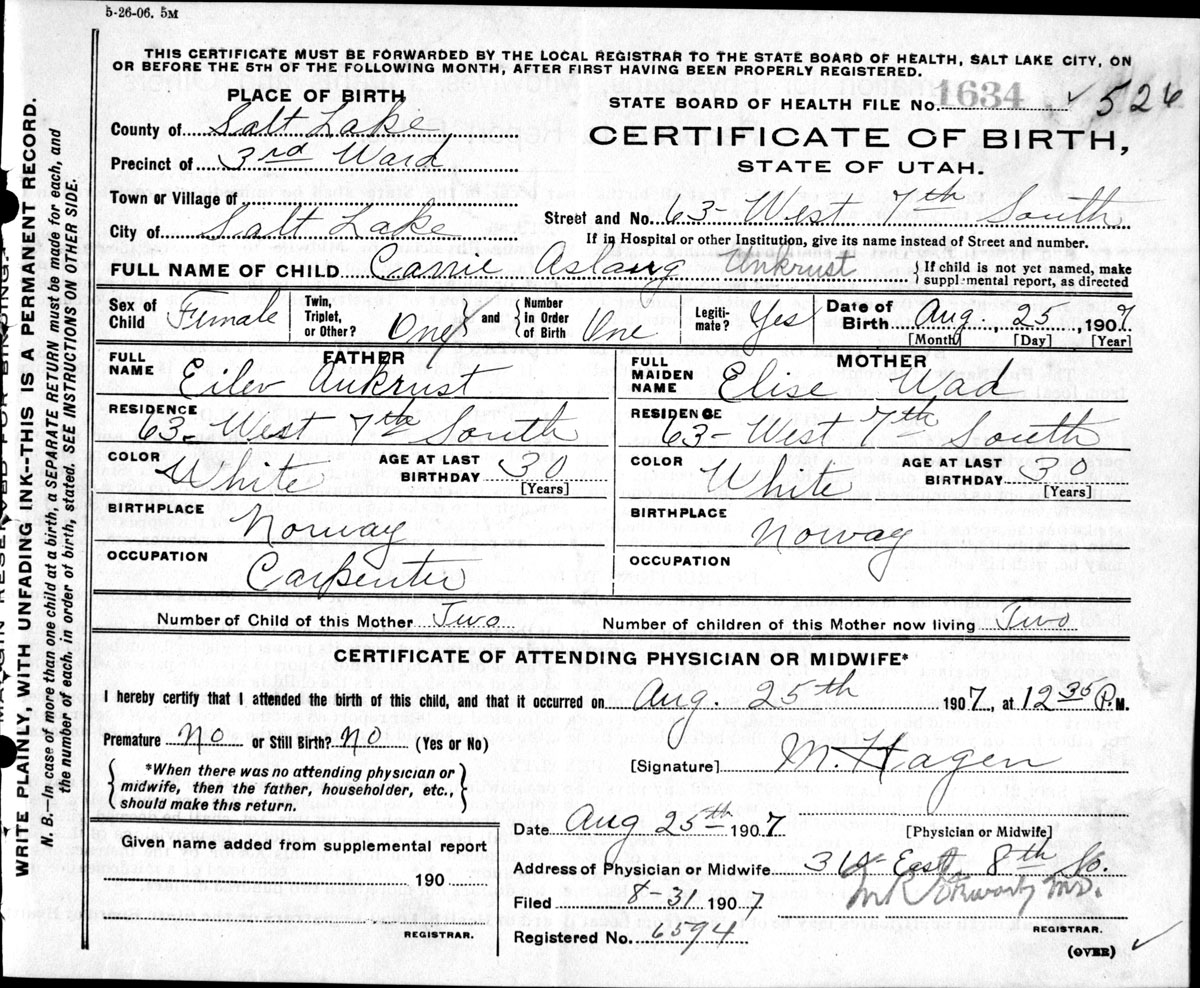 5-26-06. 5M
THIS CERTIFICATE MUST BE FORWARDED BY THE LOCAL REGISTRAR TO THE STATE BOARD OF HEALTH, SALT LAKE CITY, ON
OR BEFORE THE 5TH OF THE FOLLOWING MONTH, AFTER FIRST HAVING BEEN PROPERLY REGISTERED.
PLACE OF BIRTH
STATE BOARD OF HEALTH FILE No. 1634 ✓ 526
County of Salt Lake
CERTIFICATE OF BIRTH,
Precinct of 3rd Ward
STATE OF UTAH.
Town or Village of
Street and No. 63- West 7th South
City of Salt Lake
If in Hospital or other Institution, give its name instead of Street and number.
FULL NAME OF CHILD Carrie Aslaug Ankrust
If child is not yet named, make
supplemental report, as directed
Sex of Child Female
Twin, Triplet, or Other? One
and Number in Order of Birth One
Legiti-mate? Yes
Date of Birth Aug. 25, 1907
[Month] [Day] [Year]
FATHER
FULL NAME Eilev Ankrust
RESIDENCE 63- West 7th South
COLOR White AGE AT LAST BIRTHDAY 30 [Years]
BIRTHPLACE Norway
OCCUPATION Carpenter
MOTHER
FULL MAIDEN NAME Elise Wad
RESIDENCE 63- West 7th South
COLOR White AGE AT LAST BIRTHDAY 30 [Years]
BIRTHPLACE Norway
OCCUPATION
Number of Child of this Mother Two
Number of children of this Mother now living Two
CERTIFICATE OF ATTENDING PHYSICIAN OR MIDWIFE*
I hereby certify that I attended the birth of this child, and that it occurred on Aug. 25th 1907, at 12 35 P.M.
Premature No or Still Birth? No (Yes or No)
*When there was no attending physician or
midwife, then the father, householder, etc.,
should make this return.
[Signature] M. Hagen
Date Aug 25th 1907
[Physician or Midwife]
Address of Physician or Midwife East 8th So.
Filed 8-31 1907
M.D.
REGISTRAR.
Registered No. 6594
(OVER)
Given name added from supplemental report
190
REGISTRAR.
WRITE PLAINLY, WITH UNFADING INK--THIS IS A PERMANENT RECORD.
N. B.—In case of more than one child at a birth, a SEPARATE RETURN must be made for each, and
the number of each, in order of birth, stated. SEE INSTRUCTIONS ON OTHER SIDE.